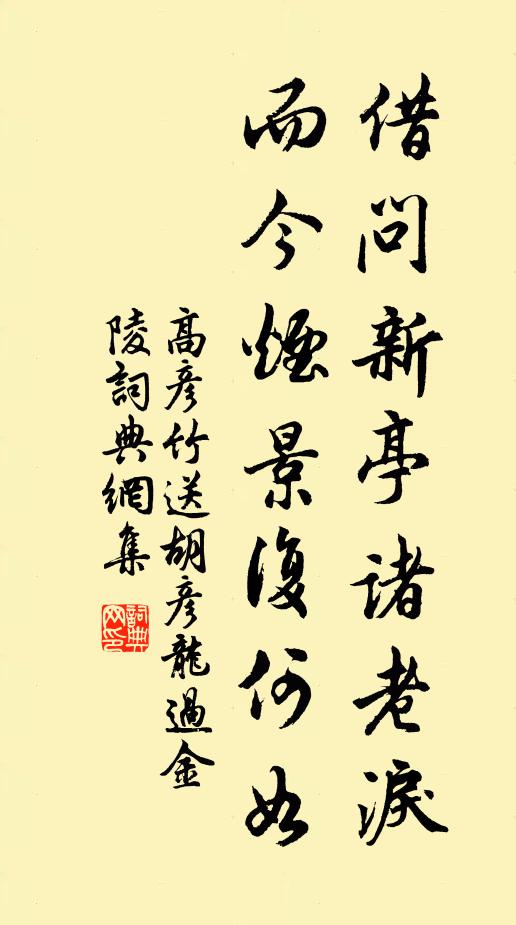 借問新亭諸老淚
而今煙景復何如
高彥竹送胡彥龍過金
陵詞典網集
詞典网印